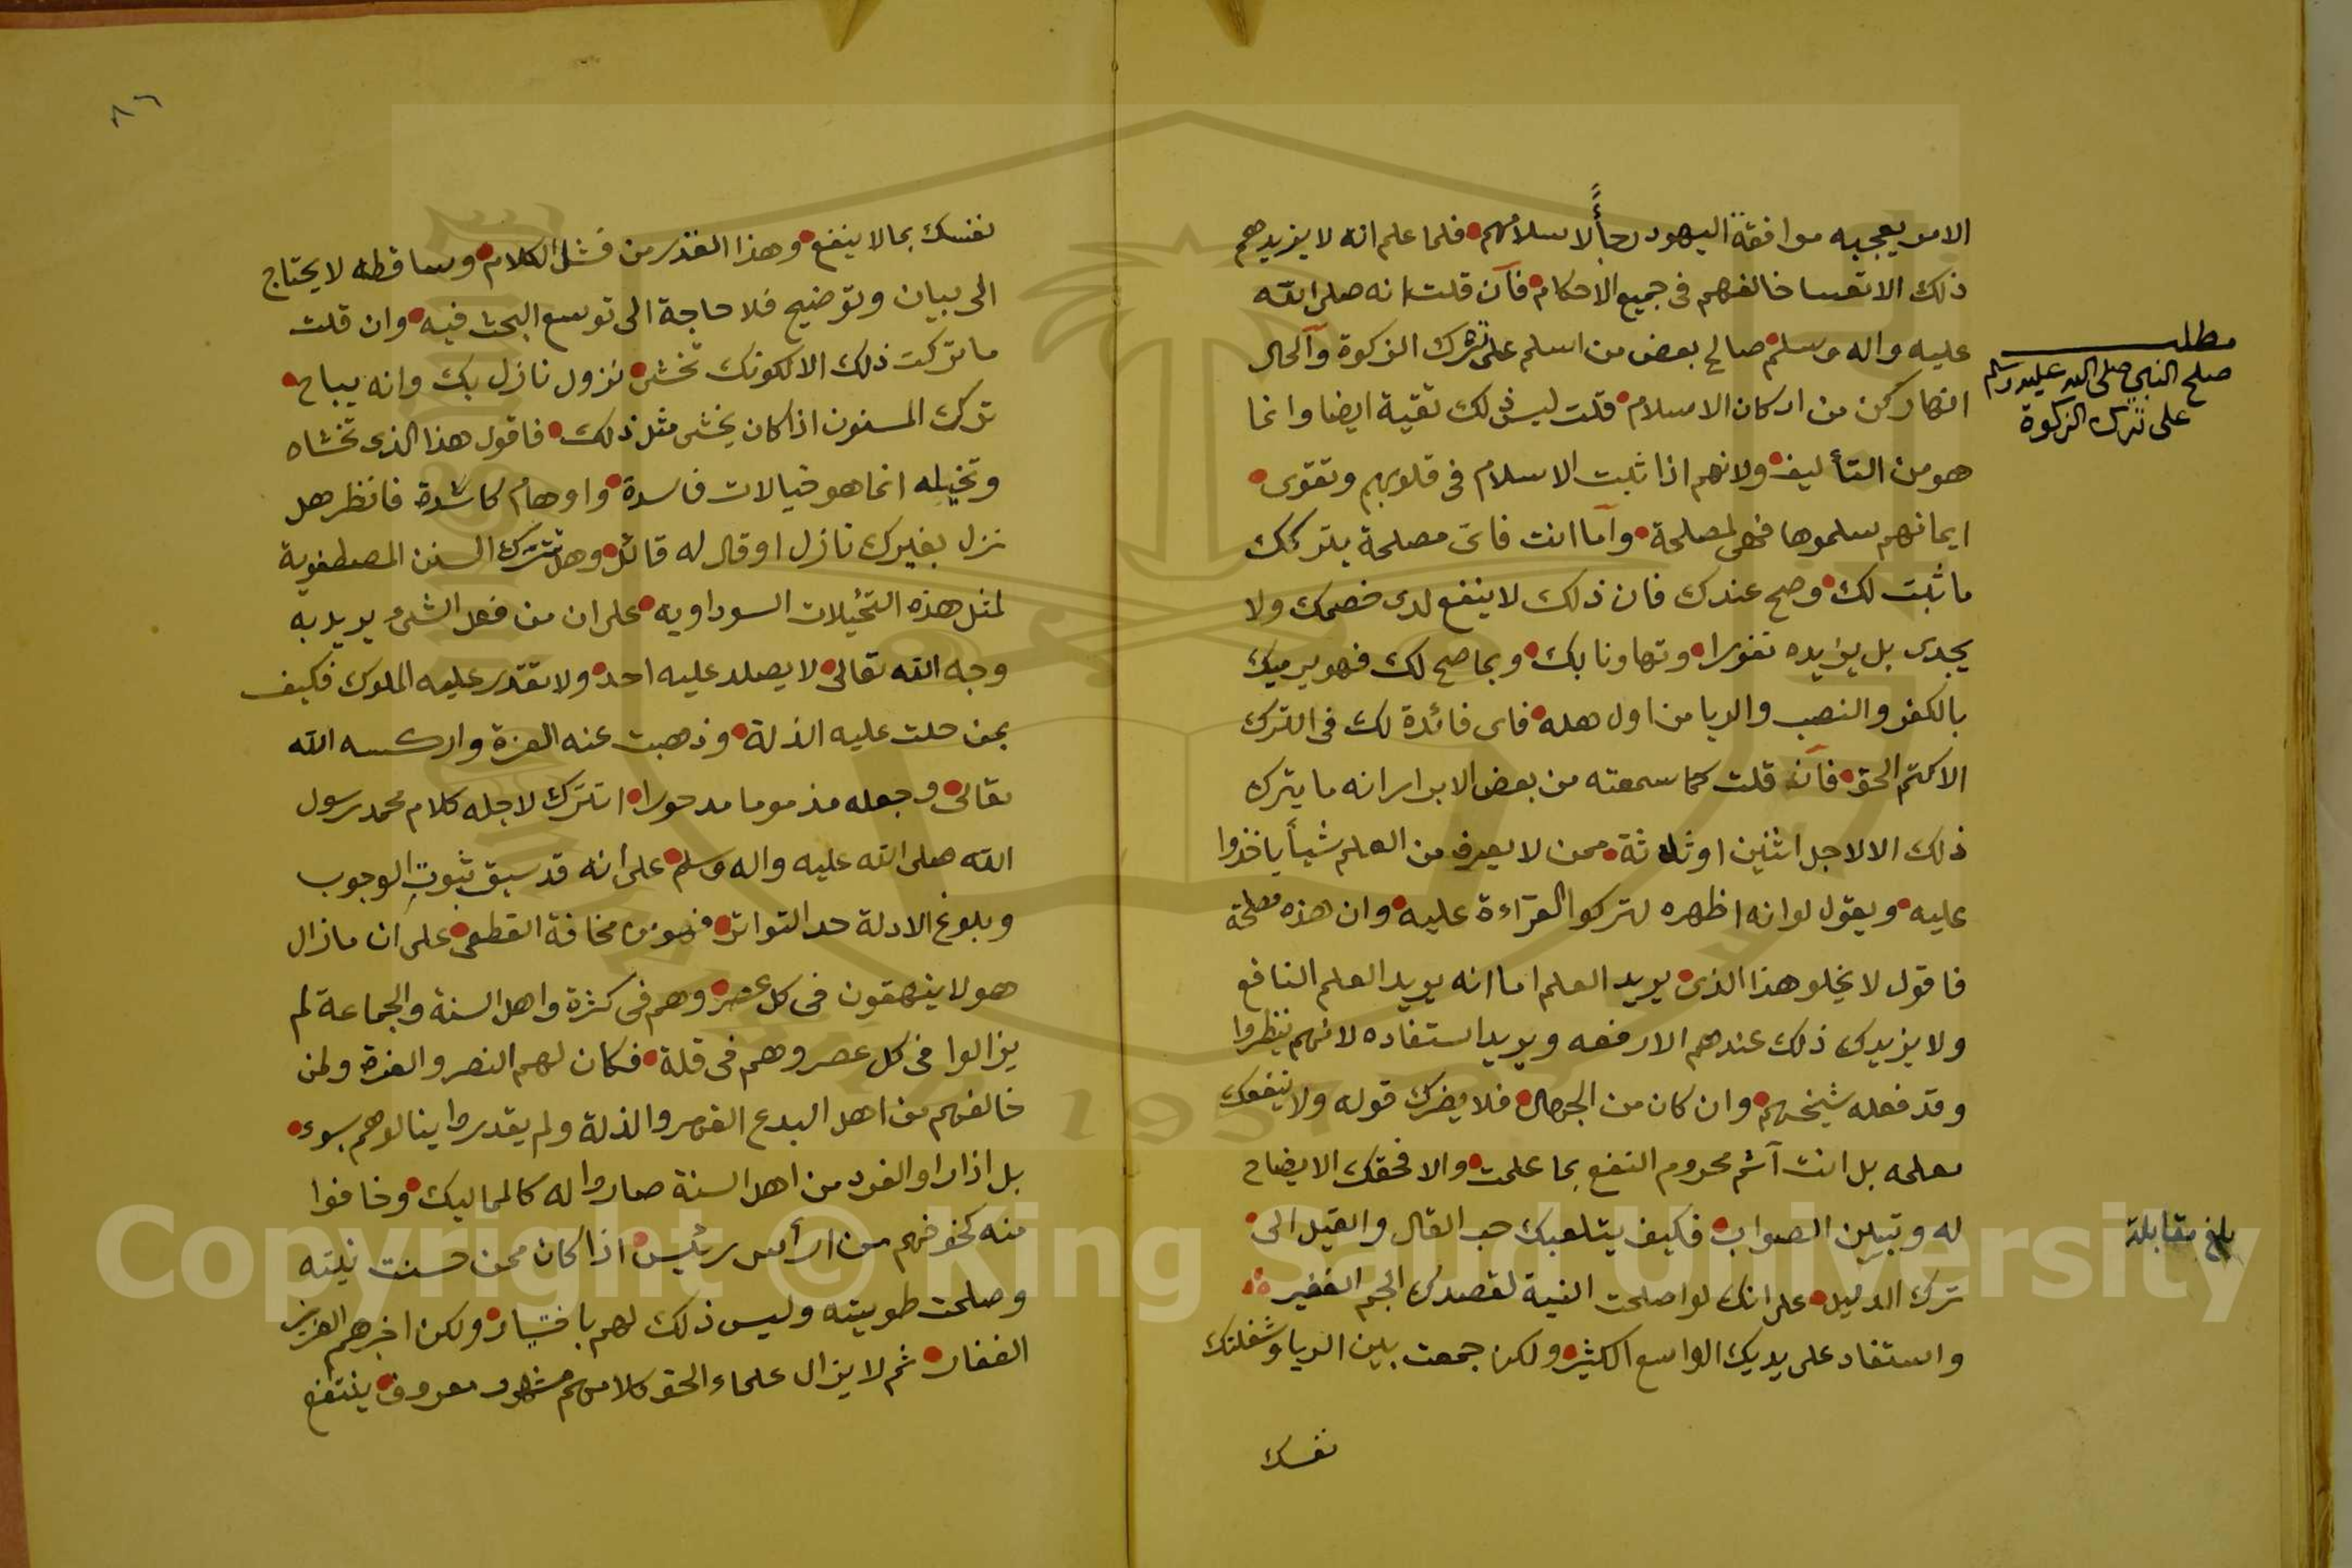 الامر يعجبه موافقة اليهود رجأً لاسلامهم فلما علم انه لا يزيدهم
ذلك الا تعسا خالفهم فى جميع الاحكام فان قلت انه صلى الله
عليه واله وسلم صالح بعض من اسلم على ترك الزكوة والحال
انها ركن من اركان الاسلام قلت ليس ذلك تقية ايضا وانما
هو من التأليف ولانهم اذا ثبت الاسلام فى قلوبهم وتقوى
ايمانهم سلموها فهى لمصلحة واما انت فاى مصلحة بتركك
ما ثبت لك وصح عندك فان ذلك لا ينفع لدى خصمك ولا
يجدى بل يزيده نفورا وتهاونا بك وبما صح لك فهو يرميك
بالكفر والنصب والريا من اول وهله فاى فائدة لك فى الترك
الا كتم الحق فان قلت كما سمعته من بعض الابرار انه ما يترك
ذلك الا لاجل اثنين او ثلاثة ممن لا يعرف من العلم شيأ ياخذوا
عليه ويقول لو انه اظهره لتركوا القراءة عليه وان هذه مصلحة
فاقول لا يخلو هذا الذى يريد العلم اما انه يريد العلم النافع
ولا يزيدك ذلك عندهم الا رفعه ويريد استفاده لانهم ينظروا
وقد فعله شيخهم وان كان من الجهال فلا يضرك قوله ولا ينفعك
تعلمه بل انت آثم محروم النفع بما علمت والا فحقك الايضاح
له وتبيين الصواب فكيف يتلعبك حب القال والقيل الى
ترك الدليل على انك لو اصلحت النية لقصدك الجم الغفير
واستفاد على يديك الواسع الكثير ولكن جمعت بين الريا وشغلتك
نفسك
مطلب
صلح النبي صلى الله عليه وسلم
على ترك الزكوة
بلغ مقابلة
٨٦
نفسك بما لا ينفع وهذا القدر من فشل الكلام وساقطه لا يحتاج
الى بيان وتوضيح فلا حاجة الى توسع البحث فيه وان قلت
ما تركت ذلك الا لكونك تخشى نزول نازل بك وانه يباح
ترك المسنون اذا كان يخشى مثل ذلك فاقول هذا الذى تخشاه
وتخيله انما هو خيالات فاسدة واوهام كاسدة فانظر هل
نزل بغيرك نازل او قال له قائل وهل تترك السنن المصطفوية
لمثل هذه التخيلات السوداويه على ان من فعل الشئ يريد به
وجه الله تعالى لا يصلد عليه احد ولا تقدر عليه الملوك فكيف
بمن حلت عليه الذلة وذهبت عنه العزة واركسه الله
تعالى وجعله مذموما مدحورا اتترك لاجله كلام محمد رسول
الله صلى الله عليه واله وسلم على انه قد سبق ثبوت الوجوب
وبلوغ الادلة حد التواتر فهو من مخافة القطعى على ان ما زال
هولا ينهقون فى كل عصر وهم فى كثرة واهل السنة والجماعة لم
يزالوا فى كل عصر وهم فى قلة فكان لهم النصر والعزة ولمن
خالفهم من اهل البدع القهر والذلة ولم يقدروا ينالوهم بسوء
بل اذا راوا الفرد من اهل السنة صاروا له كالمماليك وخافوا
منه كخوفهم من ارأس رئيس اذا كان ممن حسنت نيته
وصلحت طويته وليس ذلك لهم باختيار ولكن اخبرهم العزيز
الغفار ثم لا يزال علماء الحق كلامهم مشهور معروف ينتفع
Copyright © King Saud University
1957